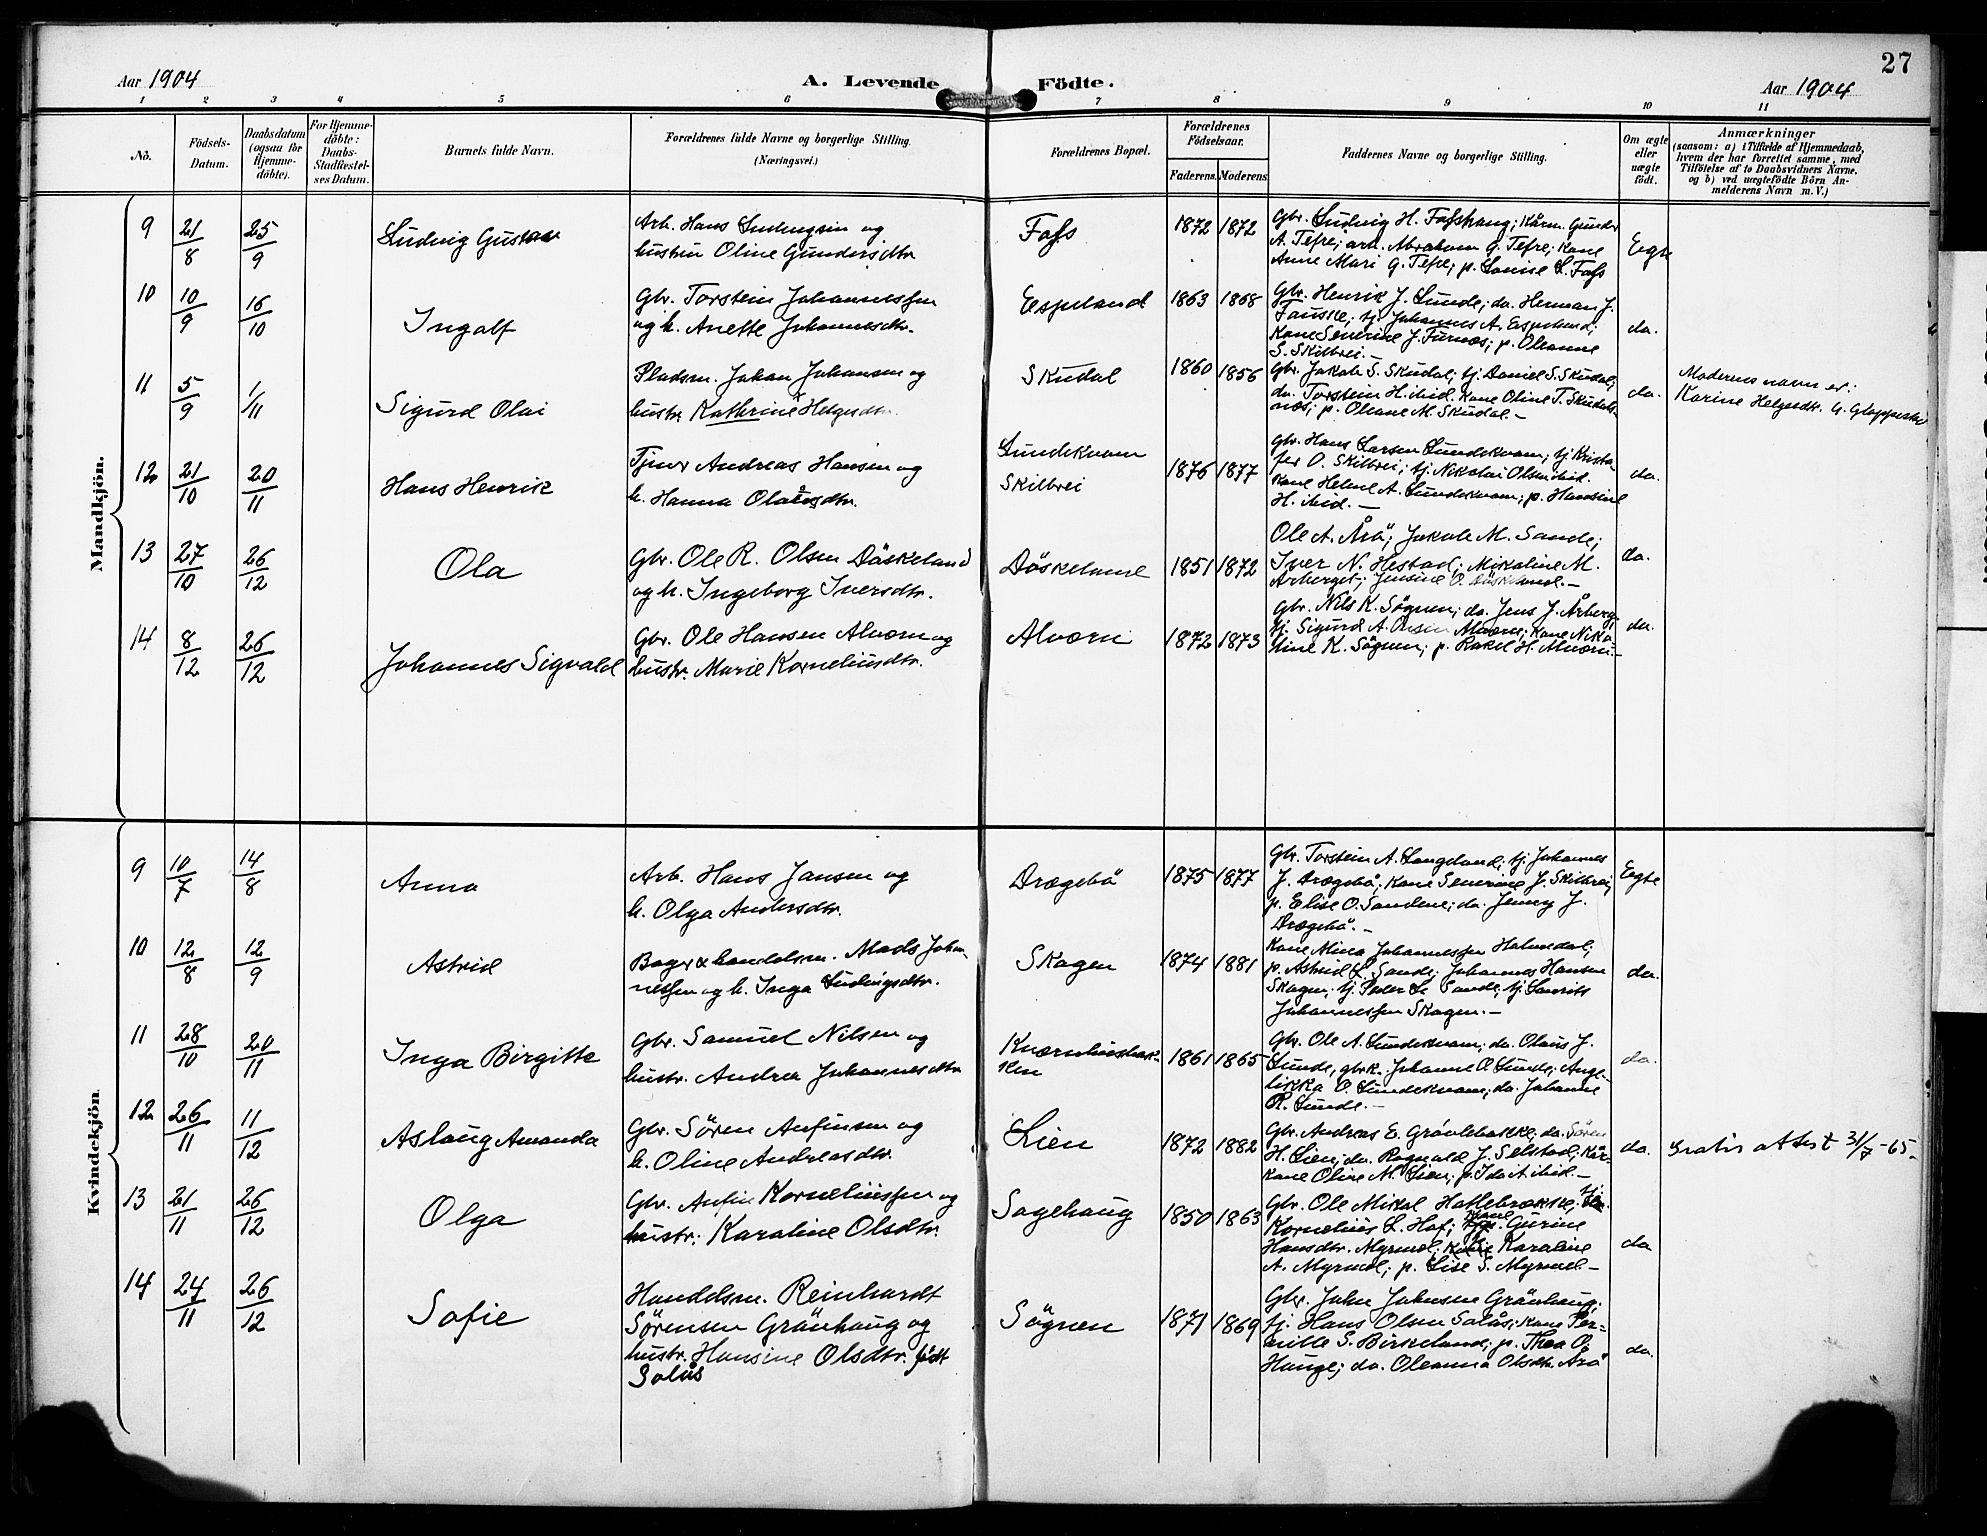 27
Aar 1904
A. Levende Födte.
Aar 1904
1 2 3 4 5 6 7 8 9 10 11
No.
Födsels-
Datum.
Daabsdatum
(ogsaa for
Hjemme-
döbte).
For Hjemme-
döbte:
Daabs-
Stadfæstel-
ses Datum.
Barnets fulde Navn.
Forældrenes fulde Navne og borgerlige Stilling.
(Næringsvei.)
Forældrenes Bopæl.
Forældrenes
Födselsaar.
Faderens. Moderens.
Faddernes Navne og borgerlige Stilling.
Om ægte
eller
uægte
födt.
Anmærkninger
(saasom: a) i Tilfælde af Hjemmedaab,
hvem der har forrettet samme, med
Tilföielse af to Daabsvidners Navne,
og b) ved uægtefödte Börn An-
melderens Navn m. V.)
Mandkjön.
9 21/8 25/9 Ludvig Gustav
Arb. Hans Ludvigsen og
hustru Oline Gundersdtr.
Fass 1872 1872
Gbr. Ludvig H. Fasshaug; Kårm. Gunder
A. Tefre; arb. Abraham G. Tefre; Kone
Anne Mari G. Tefre; p. Lovise L. Fass
Egte
10 10/9 16/10 Ingolf
Gbr. Torstein Johannessen
og h. Anette Johannesdtr.
Espeland 1863 1868
Gbr. Henrik J. Sunde; do. Herman J.
Fauske; tj. Johannes A. Espeland;
Kone Severine J. Furnæs; p. Oleanne
S. Skilbrei.-
do.
11 5/9 1/11 Sigurd Olai
Pladsm. Johan Johansen og
hustr. Kathrine x Helgesdtr.
Skudal 1860 1856
Gbr. Jakob S. Skudal; tj. Daniel S. Skudal;
do. Torstein H. ibid. Kone Oline T. Skudals-
næs; p. Oliane M. Skudal.-
do.
Moderens navn er:
Karine Helgesdtr.
12 21/10 20/11 Hans Henrik
Tjener Andreas Hansen og
h. Hanna Olaisdtr.
Sundekvam
Skilbrei
1876 1877
Gbr. Hans Larsen Sundekvam; tj. Krista-
fer O. Skilbrei; tj. Nikolai Olsen ibid.
Kone Helene A. Sundekvam; p. Hansine
H. ibid.-
do.
13 27/10 26/12 Ola
Gbr. Ole R. Olsen Döskeland
og h. Ingeborg Iversdtr.
Döskeland 1851 1872
Ole A. Årö; Jakob M. Sande;
Iver N. Hestad; Mikaline M.
Arberget; Jensine O. Döskeland.-
do.
14 8/12 26/12 Johannes Sigvald
Gbr. Ole Hansen Alværn og
hustr. Marie Korneliusdtr.
Alværn 1872 1873
Gbr. Nils K. Sögnen; do. Jens J. Årberg;
tj. Sigurd A. Alværn; Kone Niko-
line K. Sögnen; p. Rakel H. Alværn.-
do.
Kvindekjön.
9 10/7 14/8 Anna
Arb. Hans Jansen og
h. Olga Andersdtr.
Drægebö 1875 1877
Gbr. Torstein A. Langeland; tj. Johannes
J. Drægebö; Kone Severine J. Skilbrei;
p. Elise O. Sandene; do. Jenny J.
Drægebö.-
Egte
10 12/8 12/9 Astrid
Bager & handelsm. Mads Johan-
nessen og h. Inga Ludvigsdtr.
Skagen 1874 1881
Kone Mina Johannessen Holmedal;
p. Astrid L. Sande; Johannes Hansen
Skagen; tj. Peder L. Sande; tj. Laurits
Johannessen Skagen.-
do.
11 28/10 20/11 Inga Birgitte
Gbr. Samuel Nilsen og
hustr. Andrea Johannesdtr.
Kværnhusbak-
ken
1861 1865
Gbr. Ole A. Sundekvam; do. Olaus J.
Sunde, gbrk. Johanne O. Sunde; Ange-
likka O. Sundekvam; do. Johanne
R. Sunde.-
do.
12 26/11 11/12 Aslaug Amanda
Gbr. Sören Anfinsen og
h. Oline Andreasdtr.
Lien 1872 1882
Gbr. Andreas E. Grövlebakke; do. Sören
H. Lien; do. Ragnvald J. Selstad; Kår-
kone Oline M. Lien; p. Ida A. ibid.-
do.
Gratis attest 31/7-65.
13 21/11 26/12 Olga
Gbr. Anfin Korneliussen og
hustr: Karoline Olsdtr.
Sagehaug 1850 1863
Gbr. Ole Mikal Hatlebrække; tj.
Kornelius L. Haf; Kone Gurine
Hansdtr. Myrmel; Kone Karoline
A. Myrmel; p. Lise S. Myrmel-
do
14 24/11 26/12 Sofie
Handelsm. Reinhardt
Sörensen Grönhaug og
hustr. Hansine Olsdtr. födt
Solås
Sögnen 1871 1869
Gbr. John Johnsen Grönhaug;
tj. Hans Olsen Solås; Kone Per-
nille S. Birkeland; p. Thea O.
Hauge; do. Oleanna Olsdtr. Arö
do.